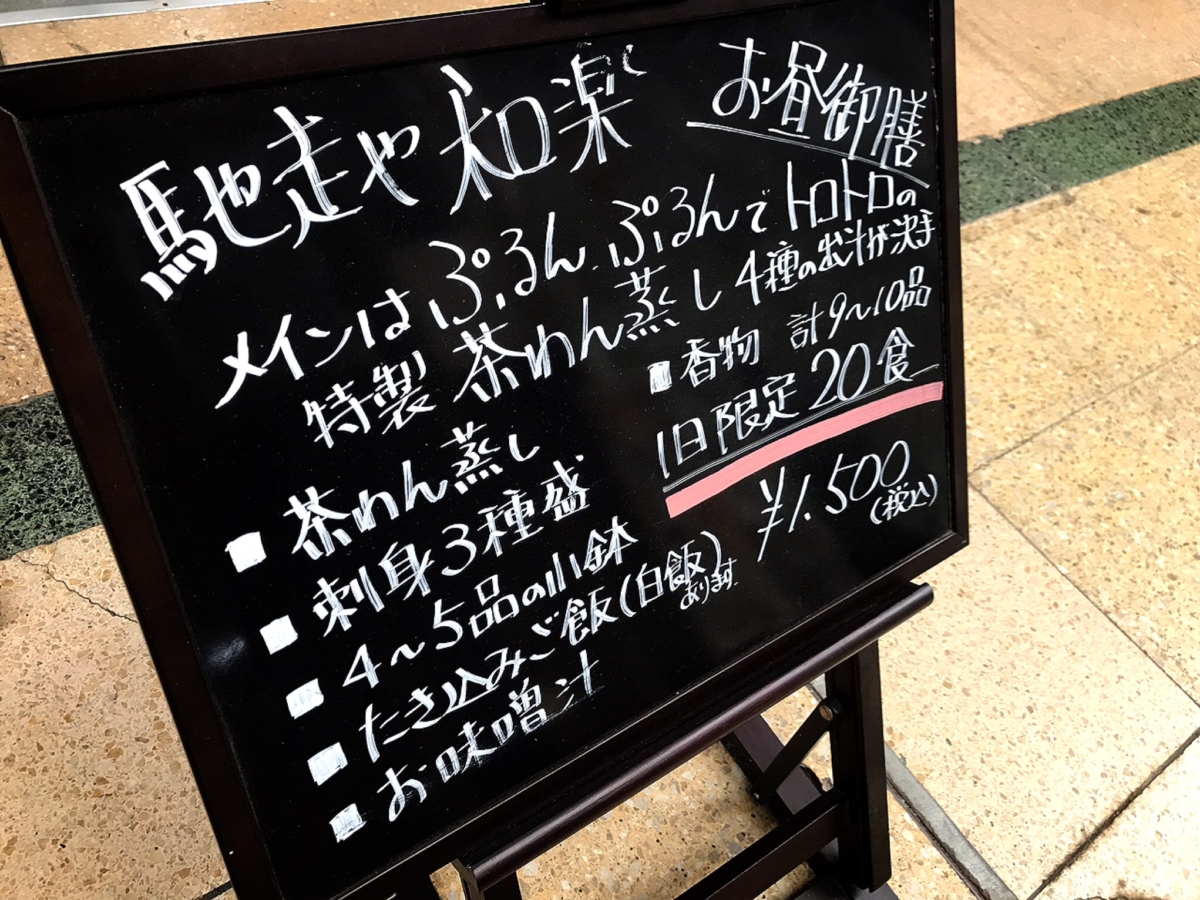 馳走や 和楽
お昼御膳
メインは ぷるん ぷるんで トロトロの
特製 茶わん蒸し 4種の出汁が決手
■ 茶わん蒸し
■ 刺身3種盛
■ 4〜5品の小鉢
■ たき込みご飯(白飯)
あります
■ お味噌汁
■ 香物 計9〜10品
1日限定20食
¥1.500
(税込)